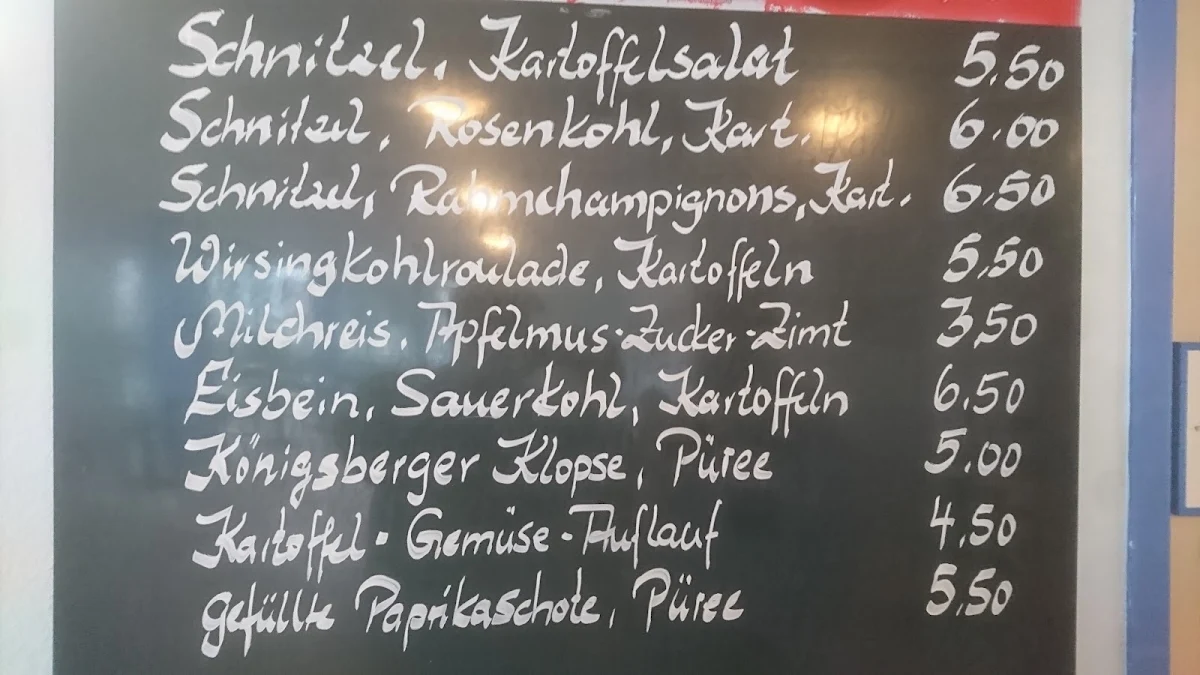 Schnitzel, Kartoffelsalat 5.50
Schnitzel, Rosenkohl, Kart. 6.00
Schnitzel, Rahmchampignons, Kart. 6.50
Wirsingkohlroulade, Kartoffeln 5.50
Milchreis, Apfelmus-Zucker-Zimt 3.50
Eisbein, Sauerkohl, Kartoffeln 6.50
Königsberger Klopse, Püree 5.00
Kartoffel-Gemüse-Auflauf 4.50
gefüllte Paprikaschote, Püree 5.50